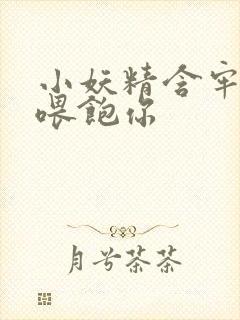 小妖精含牢
喂飽你
月兮茶茶